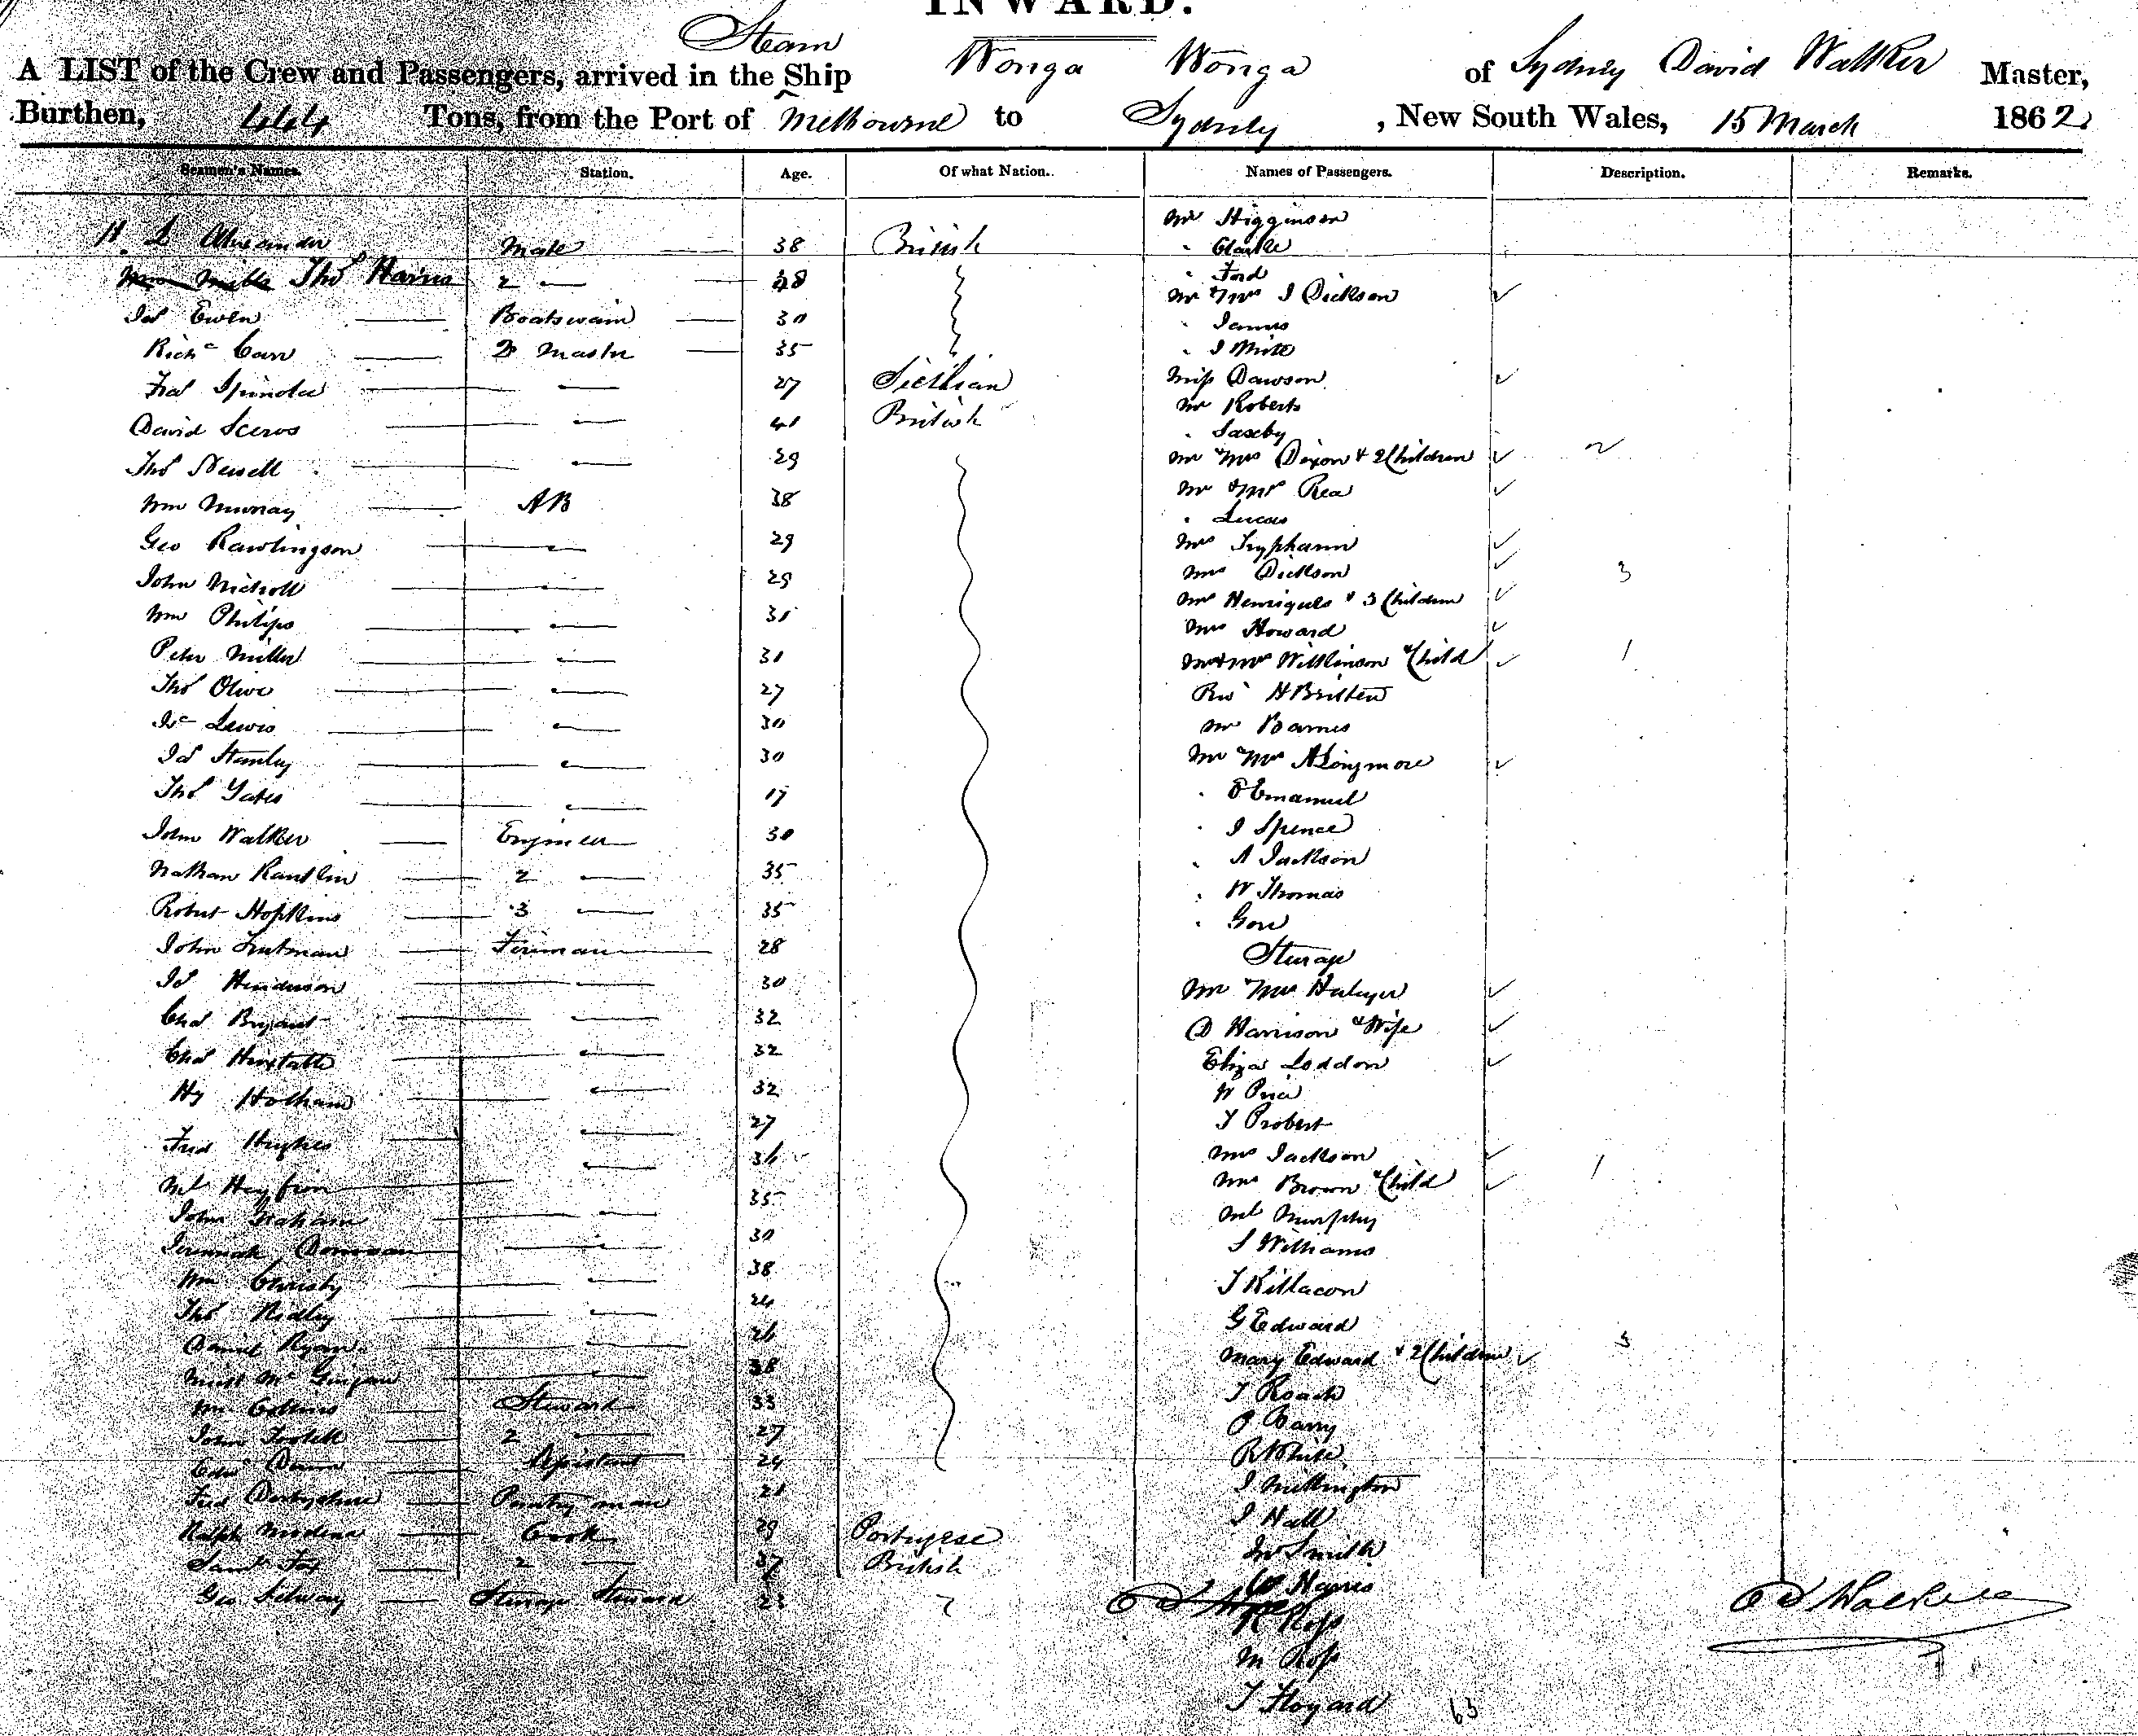 INWARD.
Steam
A LIST of the Crew and Passengers, arrived in the Ship Wonga Wonga of Sydney David Walker Master,
Burthen, 444 Tons, from the Port of Melbourne to Sydney, New South Wales, 15 March 1862
Seamen's Names. Station. Age. Of what Nation. Names of Passengers. Description. Remarks.
H. L Alexander Mate 38 British
Thos Harris 2 — 28
Jas Ewen Boatswain 30
Richd Carr 2r Master 35
Fras Spinola — 27 Sicilian
David — 41 British
Thos Newell — 29
Wm Murray AB 38
Geo Rawlingson — 29
John Nicholl — 29
Wm Philips — 31
Peter Miller — 31
Thos Olive — 27
Lewis — 30
Jas Stanley — 30
Thos Yates — 17
John Walker Engineer 30
Nathan 2 — 35
Robert Hopkins 3 — 35
John Fireman 28
Js Henderson — 30
Chas Bryant — 32
Chas — 32
Hy Hotham — 32
Fred Hughes — 27
Ml — 36
John Graham — 35
Jeremiah — 30
Wm Christy — 38
Thos Ridley — 24
Daniel Ryan — 26
— 38
Wm Collins Steward 33
John 2 — 27
Edwd Assistant 24
Fred Derbyshire Pantry man 21
Ralph Medina Cook 29 Portugese
Saml Fox 2 — 37 British
Geo Selway Steerage Steward 23
Mr Higginson
" Clarke
" Ford
Mr & Mrs J Dickson
" James
" J
Miss Dawson
Mr Roberts
" Saxby
Mr & Mrs Dixon & 2 Children 2
Mr & Mrs Rea
" Lucas
Mrs
Mrs Dickson 3
Mrs Henriques & 3 Children
Mrs Howard
Mr & Mrs Wilkinson & Child 1
Revd H Britten
Mr Barnes
Mr & Mrs A Longmore
" Emanuel
" J Spence
" A Jackson
" W Thomas
" Gore
Steerage
Mr & Mrs
D Harrison & Wife
Eliza Loddon
W Price
T Probert
Mrs Jackson
Mrs Brown & Child 1
Ml Murphy
S Williams
T Killacon
G Edward
Mary Edward & 2 Children
T Roach
P Barry
R White
J Millington
J Hall
Smith
Harris
R Ross
M Ross
T Hoyard 63
D Walker